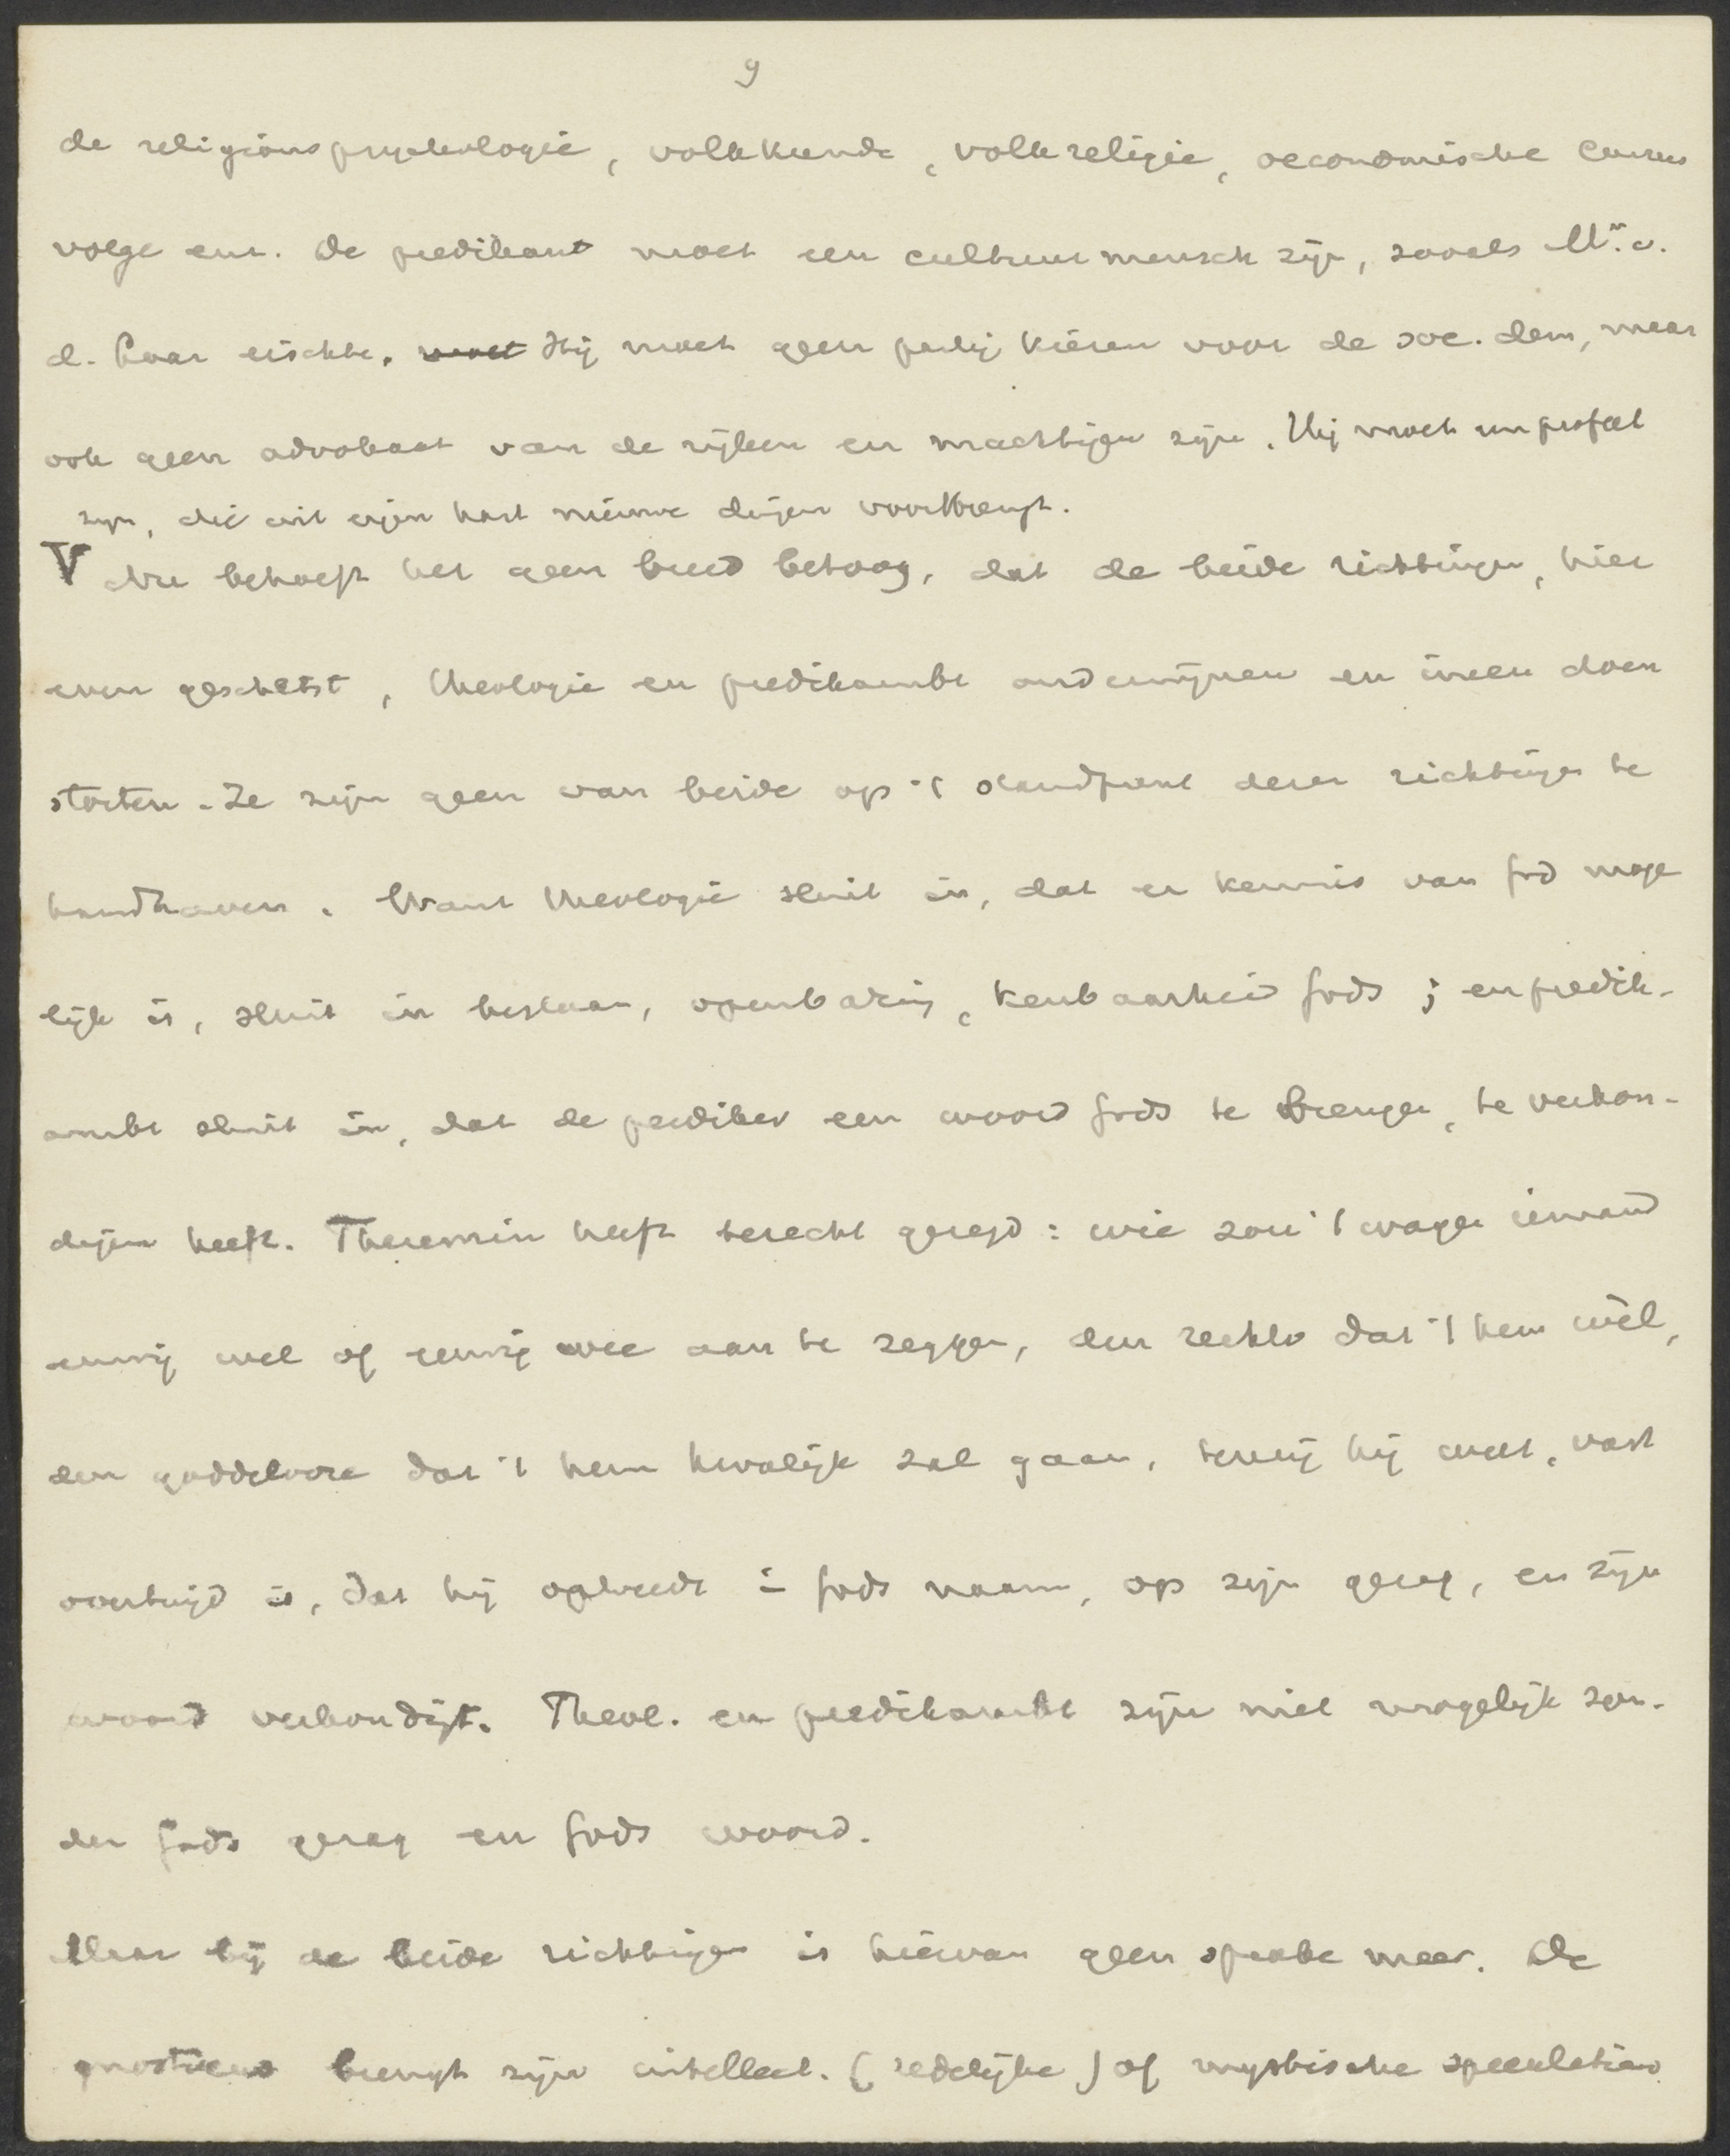 9
de religionspsychologie, volkskunde, volksreligie, oeconomische cursus
volge enz. De predikant moet een cultuurmensch zijn, zooals Mr. v.
d. Laar eischte. moet Hij moet geen partij kiezen voor de soc. dem, maar
ook geen advokaat van de rijken en machtigen zijn. Hij moet een profeet
zijn, die uit eigen hart nieuwe dingen voortbrengt.
V Nu behoeft het geen breed betoog, dat de beide richtingen, hier
even geschetst, theologie en predikambt ondermijnen en ineen doen
storten. Ze zijn geen van beide op 't standpunt dezer richtingen te
handhaven. Want theologie sluit in, dat er kennis van God moge
lijk is, sluit in bestaan, openbaring, kenbaarheid Gods; en predik-
ambt sluit in, dat de prediker een woord Gods te brengen, te verkon-
digen heeft. Theremin heeft terecht gezegd: wie zou 't wagen iemand
eeuwig wel of eeuwig wee aan te zeggen, den rechtv dat 't hem wèl,
den goddelooze dat 't hem kwalijk zal gaan, tenzij hij weet, vast
overtuigd is, dat hij optreedt in Gods naam, op zijn gezag, en zijn
woord verkondigt. Theol. en predikambt zijn niet mogelijk zon-
der Gods gezag en Gods woord.
Maar bij de beide richtingen is hiervan geen sprake meer. De
gnosticus brengt zijn intellect. (redelijke) of mystische speculaties